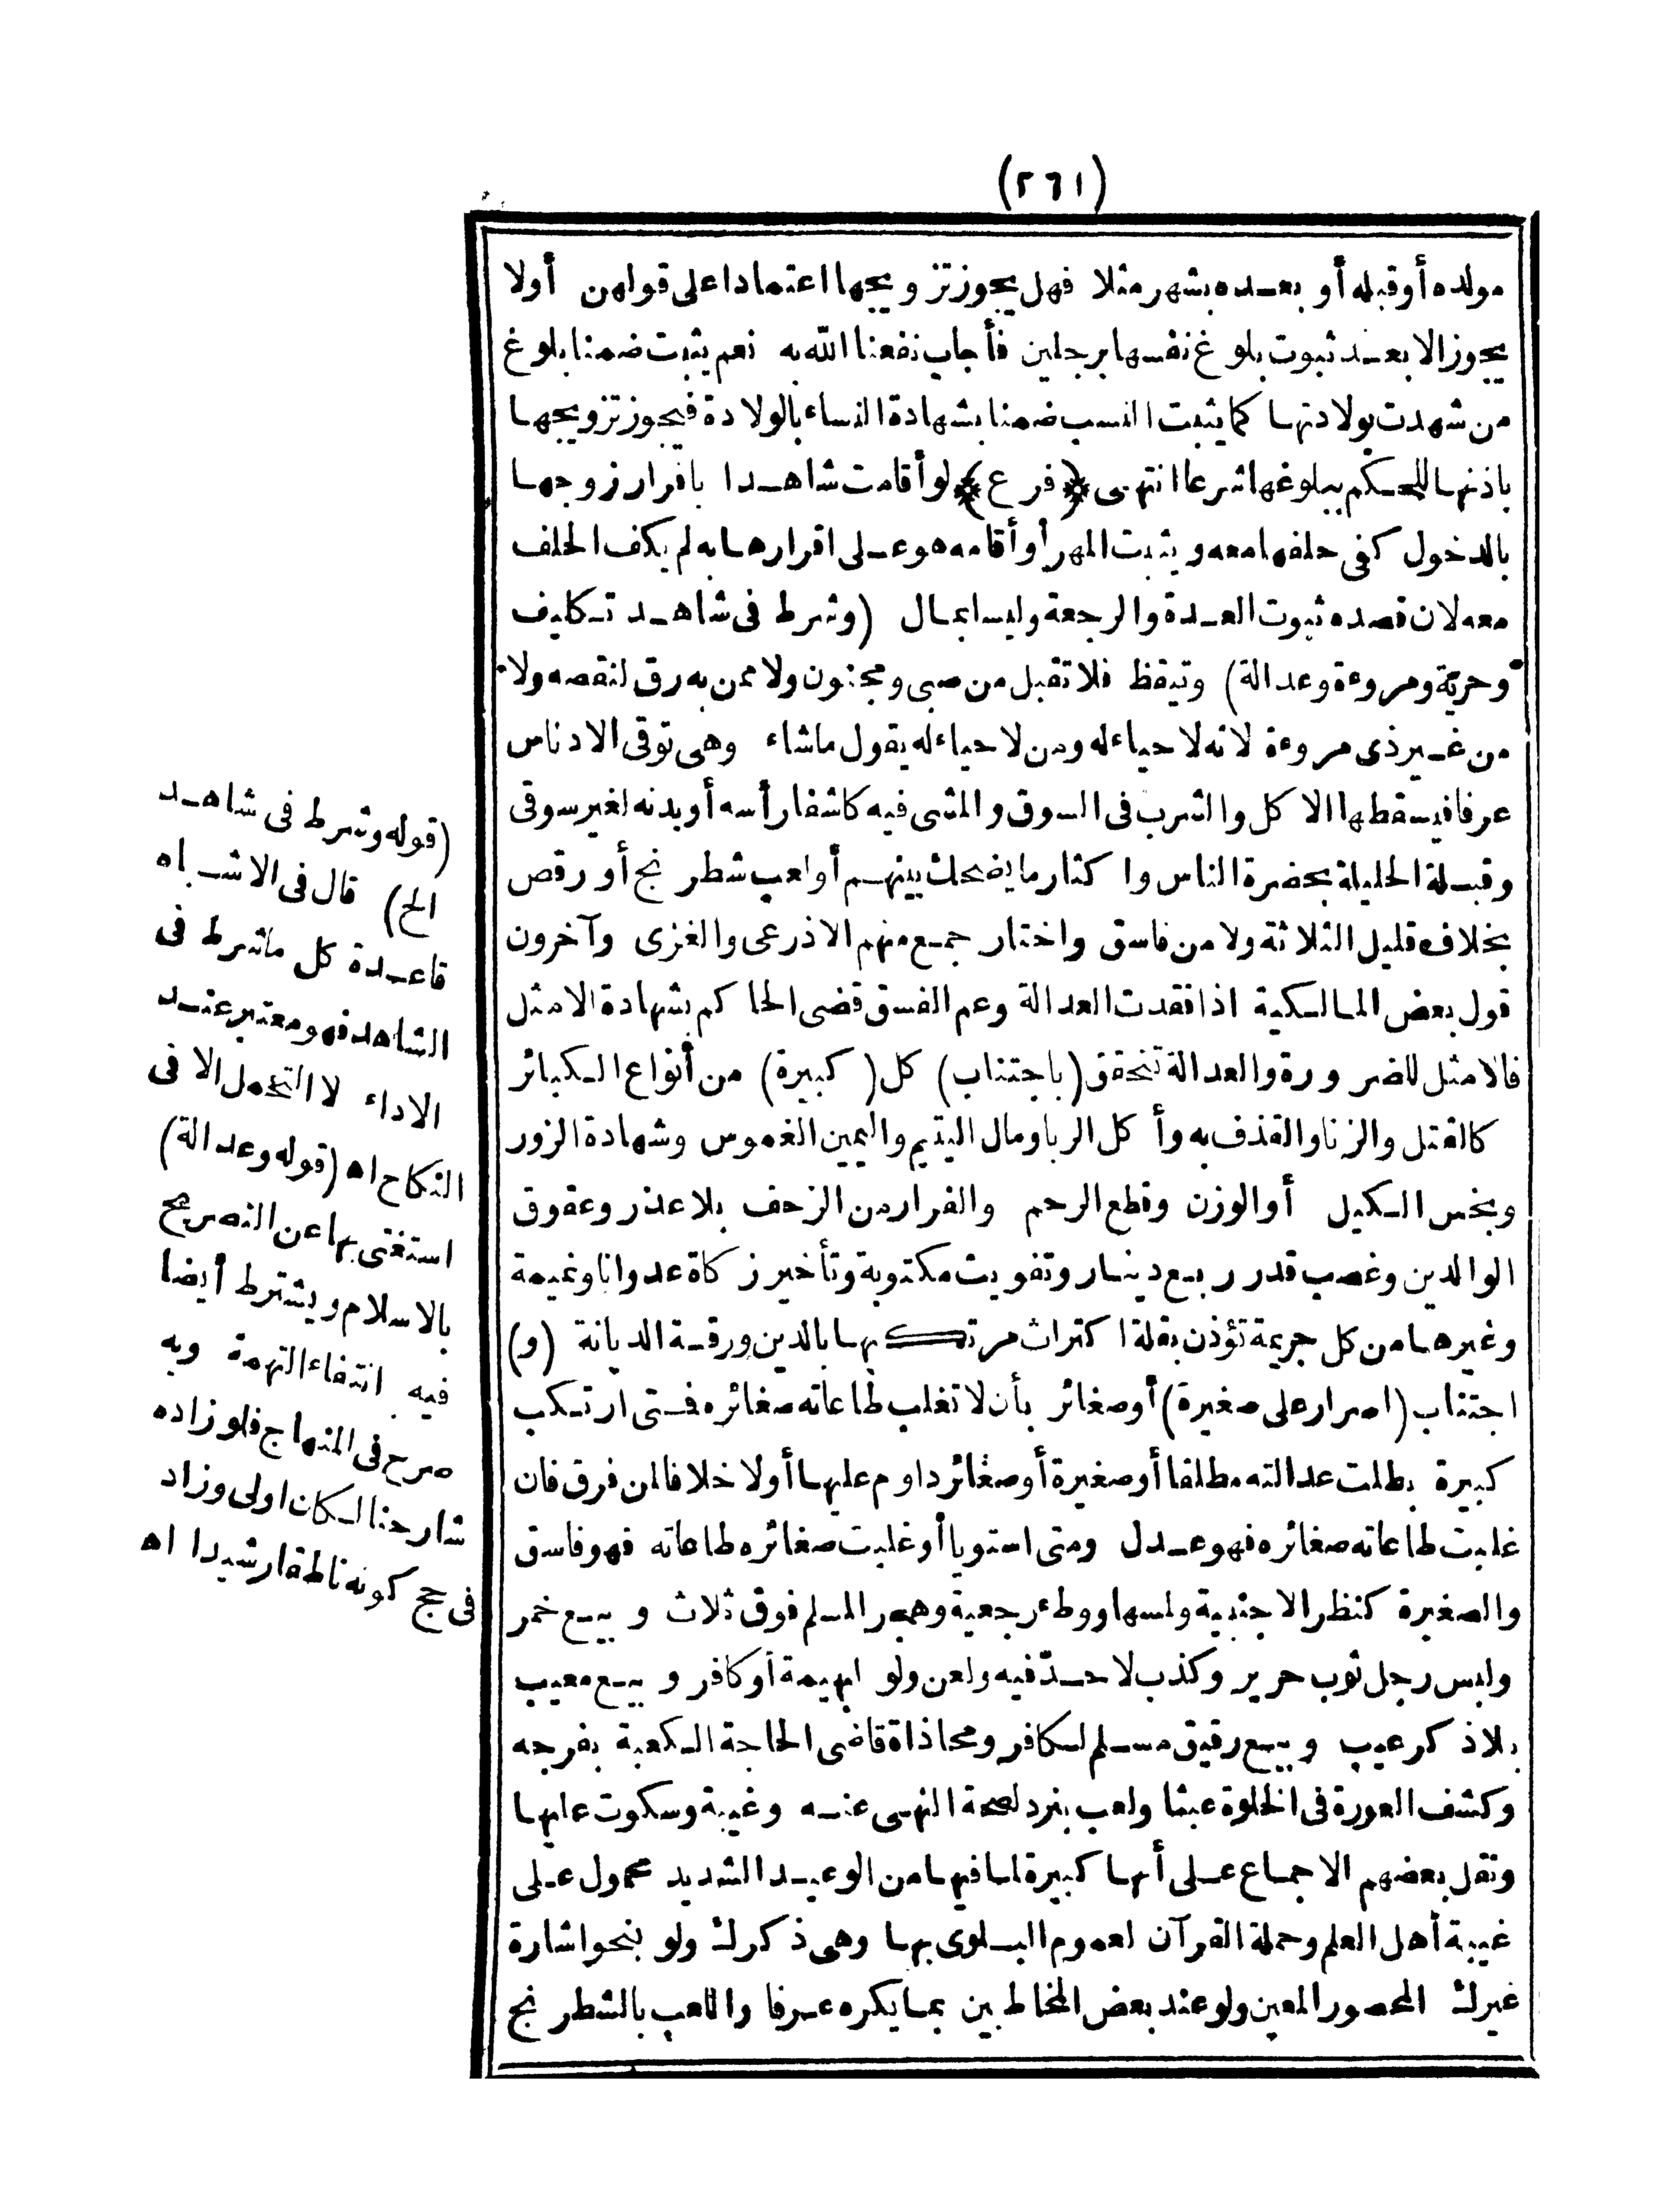 (٢٦١)
مولده أو قبله أو بعده بشهر مثلا فهل يجوز تزويجها اعتمادا على قولهن أولا
يجوز الا بعد ثبوت بلوغ نفسها برجلين فأجاب نفعنا الله به نعم يثبت ضمنا بلوغ
من شهدت بولادتها كما يثبت النسب ضمنا بشهادة النساء بالولادة فيجوز تزويجها
باذنها للحكم ببلوغها شرعا انتهى ﴿فرع﴾ لو أقامت شاهدا باقرار زوجها
بالدخول كفى حلفها معه ويثبت المهر أو أقامه هو على اقرارها به لم يكف الحلف
معه لان قصده ثبوت العدة والرجعة وليسا بمال (وشرط فى شاهد تكليف
وحرية ومروءة وعدالة) وتيقظ فلا تقبل من صبى ومجنون ولا ممن به رق لنقصه ولا
من غير ذى مروءة لانه لا حياء له ومن لا حياء له يقول ما شاء وهى توقى الادناس
عرفا فيسقطها الاكل والشرب فى السوق والمشى فيه كاشفا رأسه أو بدنه لغير سوقى
وقبلة الحليلة بحضرة الناس واكثار ما يضحك بينهم أو لعب شطرنج أو رقص
بخلاف قليل الثلاثة ولا من فاسق واختار جمع منهم الاذرعى والغزى وآخرون
قول بعض المالكية اذا فقدت العدالة وعم الفسق قضى الحاكم بشهادة الامثل
فالامثل للضرورة والعدالة تتحقق (باجتناب) كل (كبيرة) من أنواع الكبائر
كالقتل والزنا والقذف به وأكل الربا ومال اليتيم واليمين الغموس وشهادة الزور
وبخس الكيل أو الوزن وقطع الرحم والفرار من الزحف بلا عذر وعقوق
الوالدين وغصب قدر ربع دينار وتفويت مكتوبة وتأخير زكاة عدوانا ونميمة
وغيرها من كل جريمة تؤذن بقلة اكتراث مرتكبها بالدين ورقة الديانة (و)
اجتناب (اصرار على صغيرة) أو صغائر بأن لا تغلب طاعاته صغائره فمتى ارتكب
كبيرة بطلت عدالته مطلقا أو صغيرة أو صغائر داوم عليها أو لا خلافا لمن فرق فان
غلبت طاعاته صغائره فهو عدل ومتى استويا أو غلبت صغائره طاعاته فهو فاسق
والصغيرة كنظر الاجنبية ولمسها ووطء رجعية وهجر المسلم فوق ثلاث وبيع خمر
ولبس رجل ثوب حرير وكذب لا حدّ فيه ولعن ولو لبهيمة أو كافر وبيع معيب
بلا ذكر عيب وبيع رقيق مسلم لكافر ومحاذاة قاضى الحاجة الكعبة بفرجه
وكشف العورة فى الخلوة عبثا ولعب بنرد لصحة النهى عنه وغيبة وسكوت عليها
ونقل بعضهم الاجماع على أنها كبيرة لما فيها من الوعيد الشديد محمول على
غيبة أهل العلم وحملة القرآن لعموم البلوى بها وهى ذكرك ولو بنحو اشارة
غيرك المحصور المعين ولو عند بعض المخاطبين بما يكره عرفا واللعب بالشطرنج
(قوله وشرط فى شاهد
الخ) قال فى الاشباه
قاعدة كل ما شرط فى
الشاهد فهو معتبر عند
الاداء لا التحمل الا فى
النكاح اه (قوله وعدالة)
استغنى بها عن التصريح
بالاسلام ويشترط أيضا
فيه انتفاء التهمة وبه
صرح فى المنهاج فلو زاده
شارحنا لكان اولى وزاد
فى حج كونه ناطقا رشيدا اه